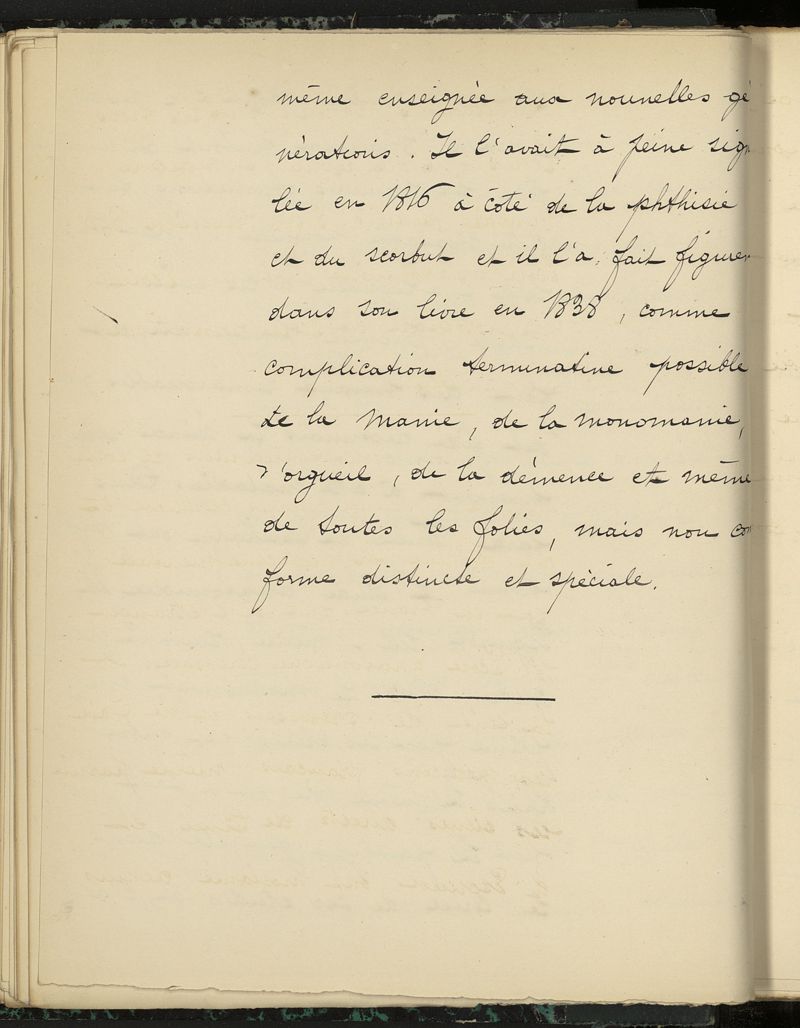 même enseignée aux nouvelles gé
nérations. Il l'avait à peine sign
lée en 1816 à côté de la phthisie
et du scorbut et il l'a, fait figurer
dans son livre en 1838, comme
complication terminative possible
de la Manie, de la monomanie,
d'orgueil, de la démence et même
de toutes les folies, mais non co
forme distincte et spéciale.